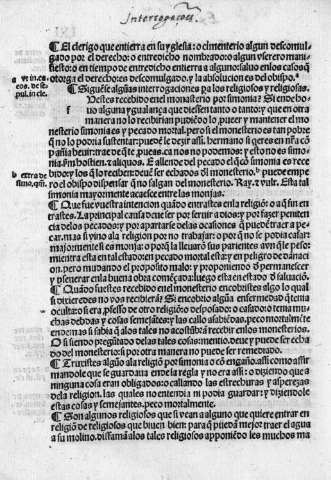 Interrogaciones.
¶ El clerigo que entierra en su yglesia: o cimenterio algun descomul
gado por el derecho: o entredicho nombrado: o algun vsurero mani
fiesto: o en tiempo de entredicho entierra a alguno saluo en los casos q̃
otorga el derecho: es descomulgado. y la absolucion es del obispo.ᵃ
a vt in. cc.
eos. de se-
pul. in cle.
¶ Siguẽse algũas interrogaciones para los religiosos y religiosas.
Uestes recebido en el monasterio por simonia? Si ende ho
uo alguna ygualança que diessen tanto o tanto: y que en otra
manera no lo recibirian pudiẽdo lo poner y mantener el mo
nesterio simonia es y pecado mortal. pero si el monesterio es tan pobre
q̃ no lo podria sustentar: puedẽ le dezir assi. hermano si q̃reys en nr̃a cõ
pañia beuir: trae de q̃ te puedas. ca nos no podemos: y esto no es simo
nia
E allende del pecado el q̃ cõ simonia es rece
bido: y los q̃ lo reciben: deuẽ ser echados dl̃ monesterio.ᵇ puede empe
ro el obispo dispensar q̃ no salgan del monesterio. Ray. τ vul. Esta tal
simonia mayormente acaece entre las monjas.
b extra de
simo.
¶ Que fue vuestra intencion quãdo entrastes en la religiõ: o a q̃ fin en
trastes. La principal causa deue ser por seruir a dios: y por fazer peniten
cia delos pecados: y por apartarse delas ocasiones q̃ puedẽ traer a pe
car. mas si vino ala religion por no trabajar: o por q̃ no se podia casar:
mayormente si es monja: o porq̃ la lleuarõ sus parientes. avn q̃ le pese:
mientra esta en tal estado: en pecado mortal esta: y en peligro de dãnaci
on. pero mudando el proposito malo: y proponiendo d̃ permanescer
y p̃seuerar en la buena obra començada: luego esta en estado d̃ saluaciõ.
¶ Quãdo fuestes recebido en el monesterio encobristes algo lo qual
si dixerades no vos recibierã? Si encobrio algũa enfermedad q̃ tenia
oculta: o si era professo de otro religiõ: o desposado: o casado: o tenia mu
chas debdas y cosas semejãtes: y las callo a sabiẽdas. peco mortalmẽte
ende mas si sabia q̃ alos tales no acostũbrã a recebir en los monesterios.
O si siendo preguntado delas tales cosas: mentio. deue y puede ser echa
do del monesterio: si por otra manera no puede ser remediado.
¶ Truxistes algũo ala religiõ por simonia o cõ engaño. assi como affir
mandole que se guardaua ende la regla y no era assi: o diziendo que a
ninguna cosa eran obligados: o callando las estrechuras y asperezas
dela religion. las quales no entendia ni podia guardar: y diziendole
estas cosas y semejantes. peco mortalmente.
¶ Son algunos religiosos que si vean a alguno que quiere entrar en
religiõ de religiosos que biuen bien: para q̃ puedã mejor traer el agua
a su molino. disfamã alos tales religiosos apponiẽdo les muchos ma